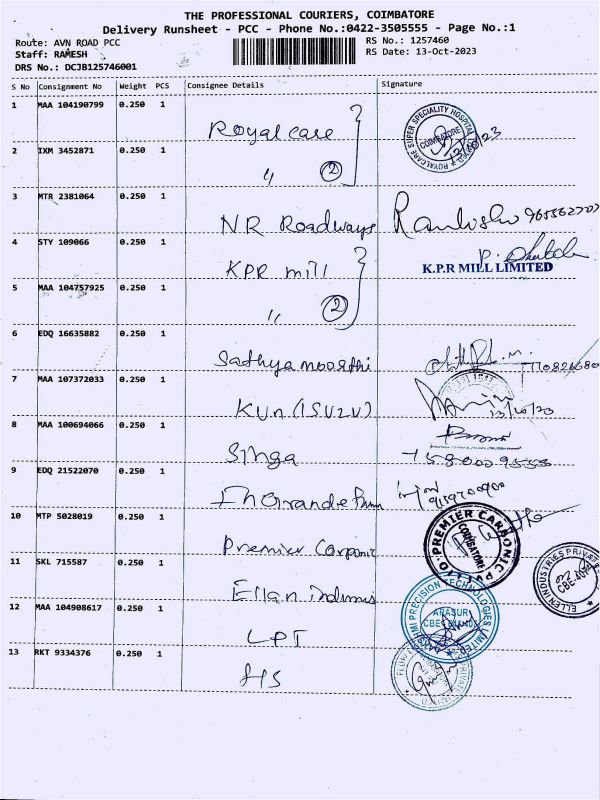 THE PROFESSIONAL COURIERS, COIMBATORE
Delivery Runsheet - PCC - Phone No.:0422-3505555 - Page No.:1
Route: AVN ROAD PCC
RS No.: 1257460
Staff: RAMESH
RS Date: 13-Oct-2023
DRS No.: DCJB125746001
S No Consignment No Weight PCS Consignee Details Signature
1 MAA 104190799 0.250 1
Royal care
ROYALCARE SUPER SPECIALITY HOSPITAL
COIMBATORE
2 IXM 3452871 0.250 1
" 2
3 MTR 2381064 0.250 1
NR Roadways
4 STY 109066 0.250 1
KPR mill
K.P.R MILL LIMITED
5 MAA 104757925 0.250 1
" 2
6 EDQ 16635882 0.250 1
Sathyamoorthi
7 MAA 107372033 0.250 1
KUN (ISUZU)
8 MAA 100694066 0.250 1
Singa
9 EDQ 21522070 0.250 1
10 MTP 5028019 0.250 1
Premier Carponic
PREMIER CARBONIC PVT LTD
COIMBATORE
11 SKL 715587 0.250 1
Ellan
ELLEN INDUSTRIES PRIVATE
12 MAA 104908617 0.250 1
LPT
LAKSHMI PRECISION TECHNOLOGIES LIMITED
ARASUR
13 RKT 9334376 0.250 1